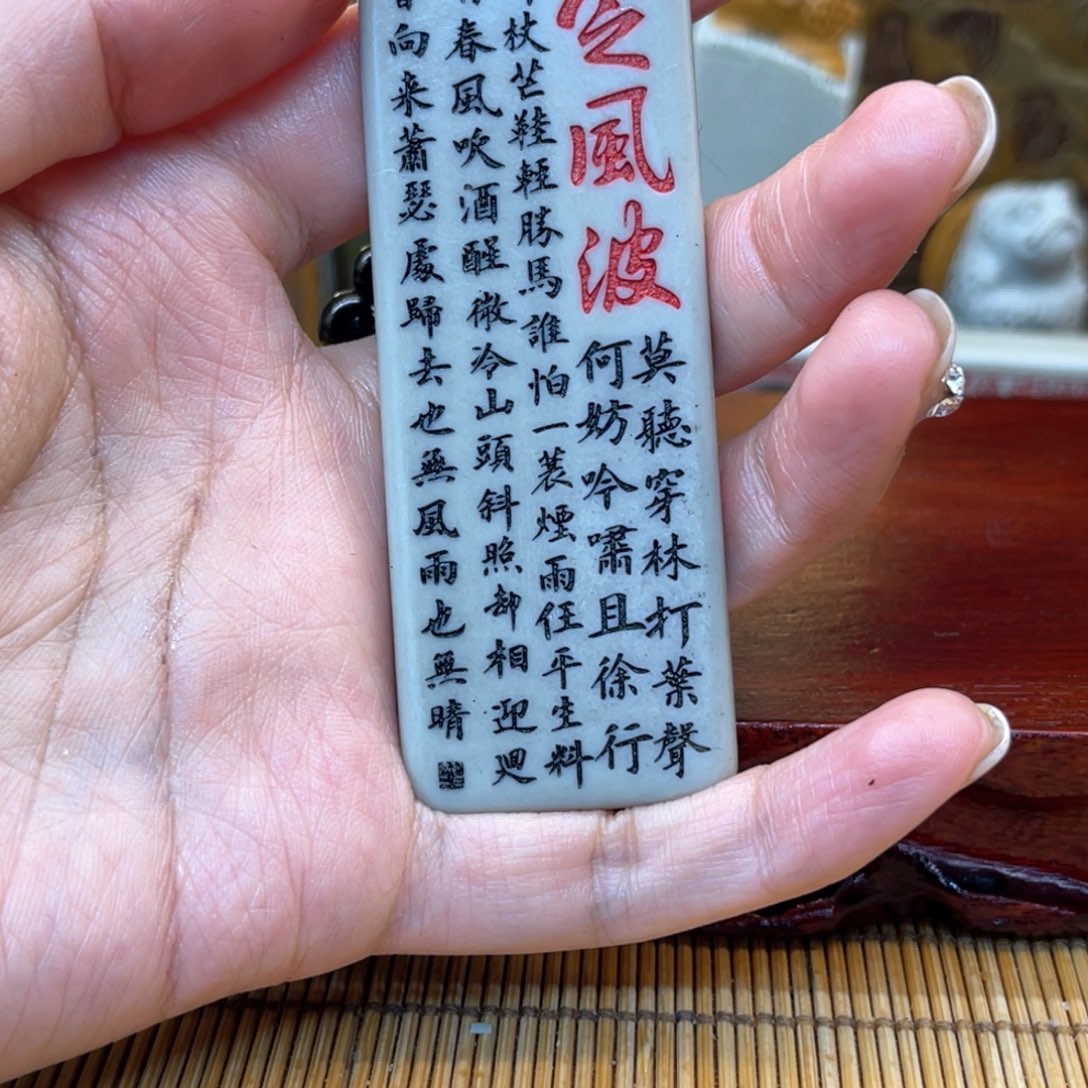 風波
莫聽穿林打葉聲
何妨吟嘯且徐行
杖芒鞋輕勝馬誰怕一蓑煙雨任平生料
春風吹酒醒微冷山頭斜照却相迎迴
向来蕭瑟處歸去也無風雨也無晴